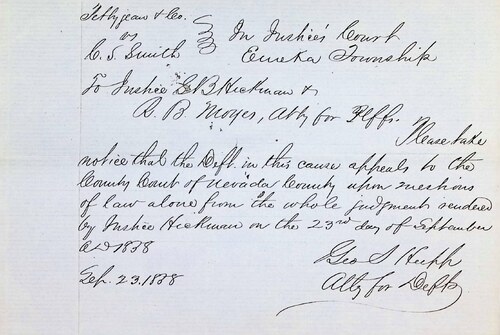 Fellyjean & Co.
vs
C. S. Smith
In Justice's Court
Eureka Township
To Justice G B Hickman &
R. B. Moyes, Atty for Plffs.
Please take
notice that the Deft. in this cause appeals to the
County Court of Nevada County upon questions
of law alone from the whole judgment rendered
by Justice Hickman on the 23rd day of September
AD 1858
Geo S Hupp
Sep. 23, 1858
Atty for Deft